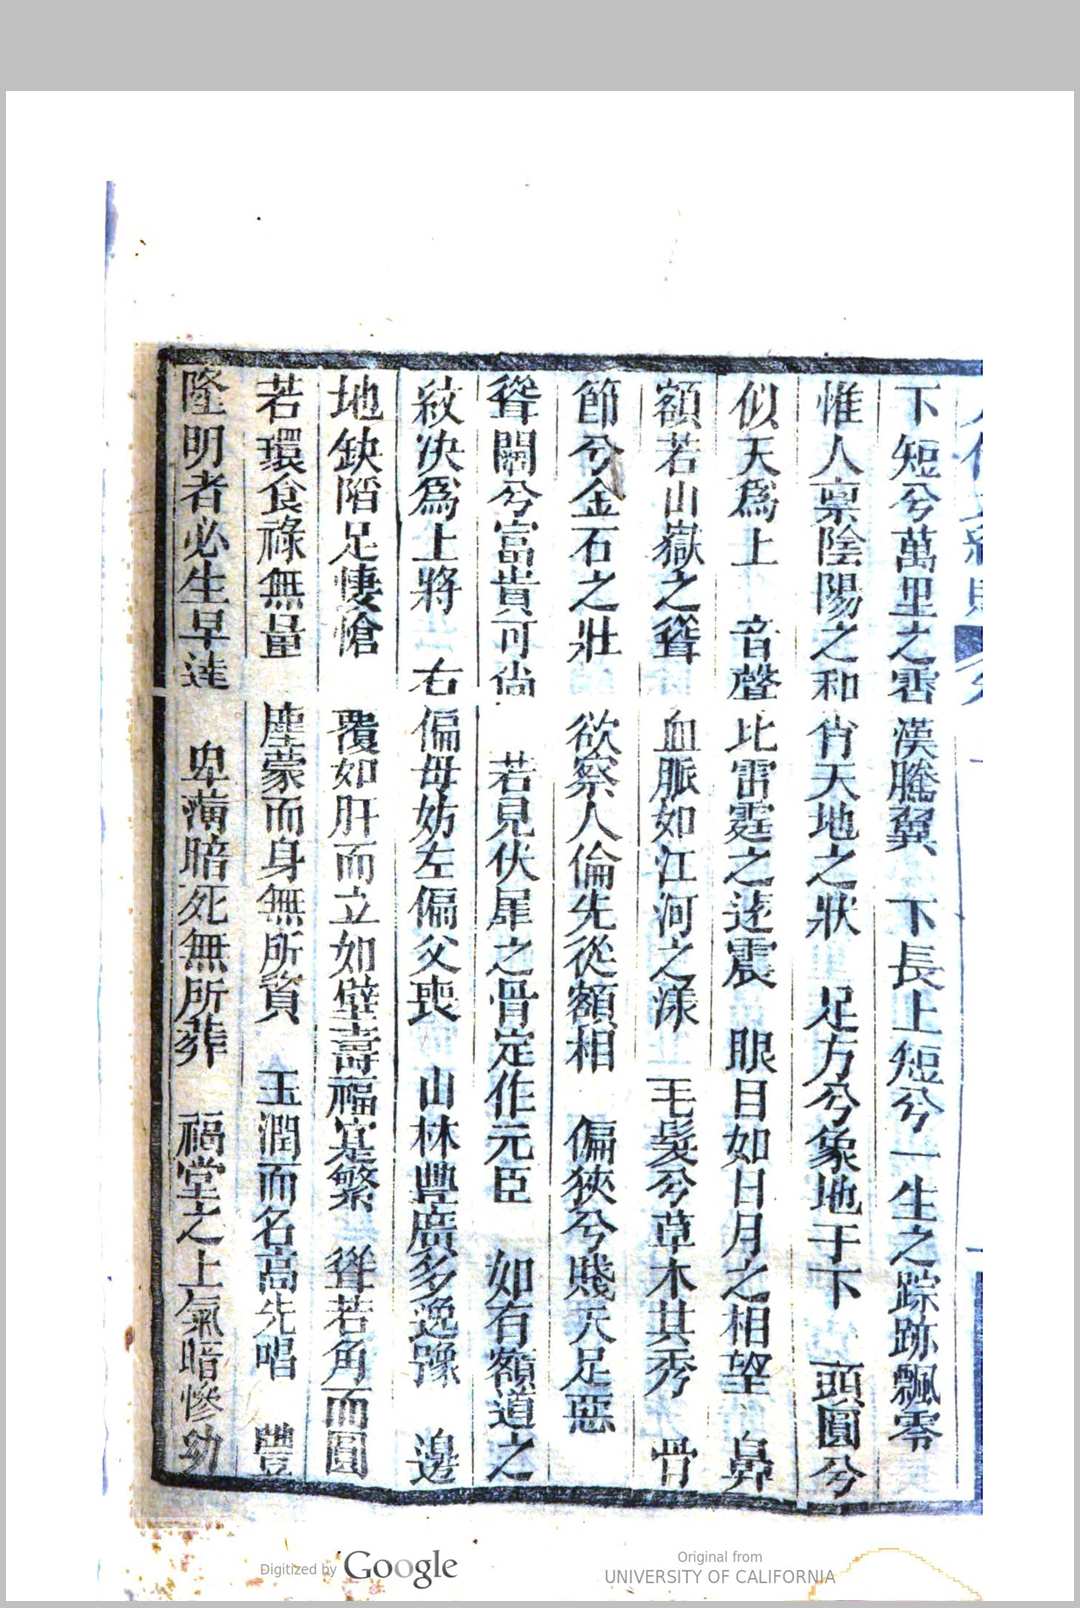 下短兮萬里之霄漢騰翼　下長上短兮一生之踪跡飄零
惟人稟陰陽之和肖天地之狀　足方兮象地于下　頭圓兮
似天爲上　音聲比雷霆之遠震　眼目如日月之相望　鼻
額若山嶽之聳　血脈如江河之漾　毛髮兮草木其秀　骨
節兮金石之壯　欲察人倫先從額相　偏狹兮賤夭足惡
聳闊兮富貴可尚　若見伏犀之骨定作元臣　如有額道之
紋决爲上將　右偏母妨左偏父喪　山林豐廣多逸豫　邊
地缺陷足悽愴　覆如肝而立如壁壽福寔繁　聳若角而圓
若環食祿無量　塵蒙而身無所資　玉潤而名高先唱　豐
隆明者必生早達　卑薄暗死無所葬　福堂之上氣暗慘幼
Digitized by Google
Original from
UNIVERSITY OF CALIFORNIA